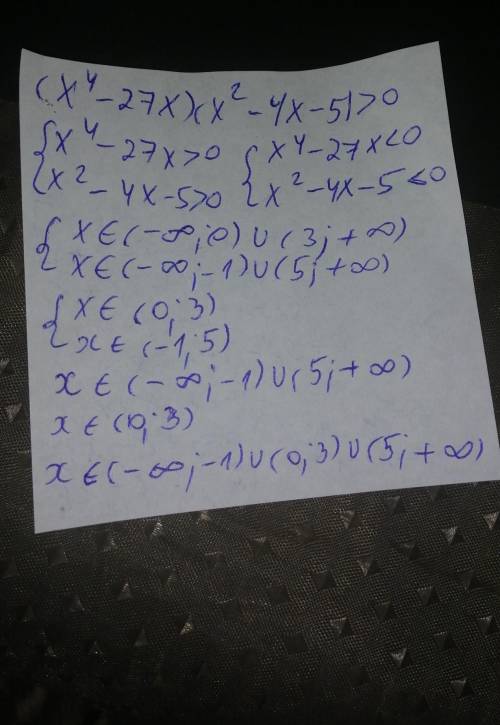 (x⁴-27x)(x²-4x-5)>0
{x⁴-27x>0 {x⁴-27x<0
{x²-4x-5>0 {x²-4x-5<0
{x∈(-∞;0)∪(3;+∞)
{x∈(-∞;-1)∪(5;+∞)
{x∈(0;3)
{x∈(-1;5)
x∈(-∞;-1)∪(5;+∞)
x∈(0;3)
x∈(-∞;-1)∪(0;3)∪(5;+∞)